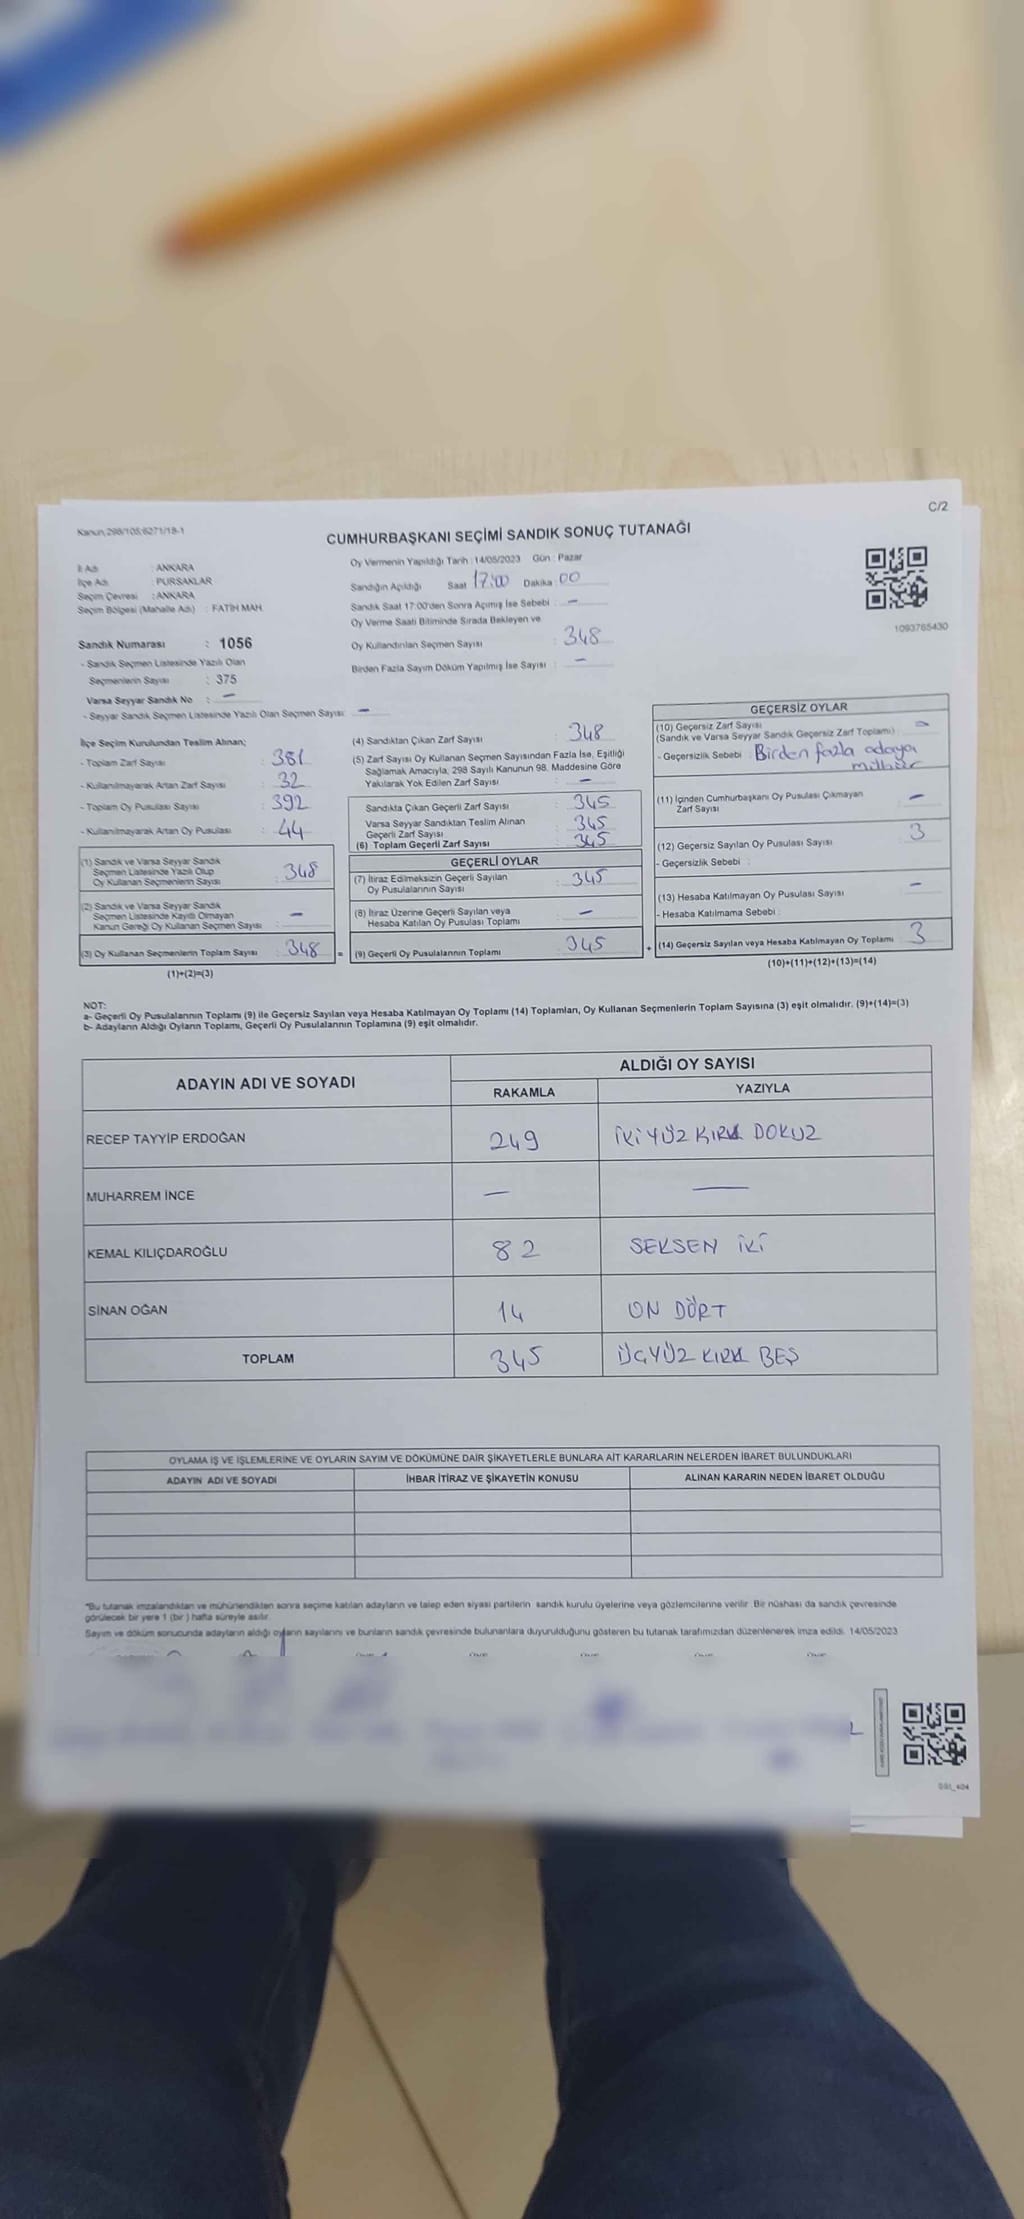 C/2
Kanun,298/105;6271/18-1
CUMHURBAŞKANI SEÇİMİ SANDIK SONUÇ TUTANAĞI
İl Adı : ANKARA
İlçe Adı : PURSAKLAR
Seçim Çevresi : ANKARA
Seçim Bölgesi (Mahalle Adı) : FATİH MAH.
Sandık Numarası : 1056
- Sandık Seçmen Listesinde Yazılı Olan
Seçmenlerin Sayısı : 375
Varsa Seyyar Sandık No : –
- Seyyar Sandık Seçmen Listesinde Yazılı Olan Seçmen Sayısı: –
Oy Vermenin Yapıldığı Tarih : 14/05/2023 Gün : Pazar
Sandığın Açıldığı Saat 17:00 Dakika : 00
Sandık Saat 17:00'den Sonra Açmış İse Sebebi : –
Oy Verme Saati Bitiminde Sırada Bekleyen ve
Oy Kullandırılan Seçmen Sayısı : 348
Birden Fazla Sayım Döküm Yapılmış İse Sayısı : –
1093765430
İlçe Seçim Kurulundan Teslim Alınan;
- Toplam Zarf Sayısı : 381
- Kullanılmayarak Artan Zarf Sayısı : 32
- Toplam Oy Pusulası Sayısı : 392
- Kullanılmayarak Artan Oy Pusulası : 44
(1) Sandık ve Varsa Seyyar Sandık
Seçmen Listesinde Yazılı Olup
Oy Kullanan Seçmenlerin Sayısı : 348
(2) Sandık ve Varsa Seyyar Sandık
Seçmen Listesinde Kayıtlı Olmayan
Kanun Gereği Oy Kullanan Seçmen Sayısı : –
(3) Oy Kullanan Seçmenlerin Toplam Sayısı : 348 =
(1)+(2)=(3)
(4) Sandıktan Çıkan Zarf Sayısı : 348
(5) Zarf Sayısı Oy Kullanan Seçmen Sayısından Fazla İse, Eşitliği
Sağlamak Amacıyla, 298 Sayılı Kanunun 98. Maddesine Göre
Yakılarak Yok Edilen Zarf Sayısı : –
Sandıkta Çıkan Geçerli Zarf Sayısı : 345
Varsa Seyyar Sandıktan Teslim Alınan
Geçerli Zarf Sayısı : 345
(6) Toplam Geçerli Zarf Sayısı : 345
GEÇERLİ OYLAR
(7) İtiraz Edilmeksizin Geçerli Sayılan
Oy Pusulalarının Sayısı : 345
(8) İtiraz Üzerine Geçerli Sayılan veya
Hesaba Katılan Oy Pusulası Toplamı : –
(9) Geçerli Oy Pusulalarının Toplamı : 345 +
GEÇERSİZ OYLAR
(10) Geçersiz Zarf Sayısı
(Sandık ve Varsa Seyyar Sandık Geçersiz Zarf Toplamı) : –
- Geçersizlik Sebebi : Birden fazla adaya
mühür
(11) İçinden Cumhurbaşkanı Oy Pusulası Çıkmayan
Zarf Sayısı : –
(12) Geçersiz Sayılan Oy Pusulası Sayısı : 3
- Geçersizlik Sebebi :
(13) Hesaba Katılmayan Oy Pusulası Sayısı : –
- Hesaba Katılmama Sebebi :
(14) Geçersiz Sayılan veya Hesaba Katılmayan Oy Toplamı : 3
(10)+(11)+(12)+(13)=(14)
NOT:
a- Geçerli Oy Pusulalarının Toplamı (9) ile Geçersiz Sayılan veya Hesaba Katılmayan Oy Toplamı (14) Toplamları, Oy Kullanan Seçmenlerin Toplam Sayısına (3) eşit olmalıdır. (9)+(14)=(3)
b- Adayların Aldığı Oyların Toplamı, Geçerli Oy Pusulalarının Toplamına (9) eşit olmalıdır.
ADAYIN ADI VE SOYADI
ALDIĞI OY SAYISI
RAKAMLA YAZIYLA
RECEP TAYYİP ERDOĞAN 249 İKİ YÜZ KIRK DOKUZ
MUHARREM İNCE — —
KEMAL KILIÇDAROĞLU 82 SEKSEN İKİ
SİNAN OĞAN 14 ON DÖRT
TOPLAM 345 ÜÇYÜZ KIRK BEŞ
OYLAMA İŞ VE İŞLEMLERİNE VE OYLARIN SAYIM VE DÖKÜMÜNE DAİR ŞİKAYETLERLE BUNLARA AİT KARARLARIN NELERDEN İBARET BULUNDUKLARI
ADAYIN ADI VE SOYADI İHBAR İTİRAZ VE ŞİKAYETİN KONUSU ALINAN KARARIN NEDEN İBARET OLDUĞU
"Bu tutanak imzalandıktan ve mühürlendikten sonra seçime katılan adayların ve talep eden siyasi partilerin sandık kurulu üyelerine veya gözlemcilerine verilir. Bir nüshası da sandık çevresinde
görülecek bir yere 1 (bir ) hafta süreyle asılır.
Sayım ve döküm sonucunda adayların aldığı oyların sayılarını ve bunların sandık çevresinde bulunanlara duyurulduğunu gösteren bu tutanak tarafımızdan düzenlenerek imza edildi. 14/05/2023